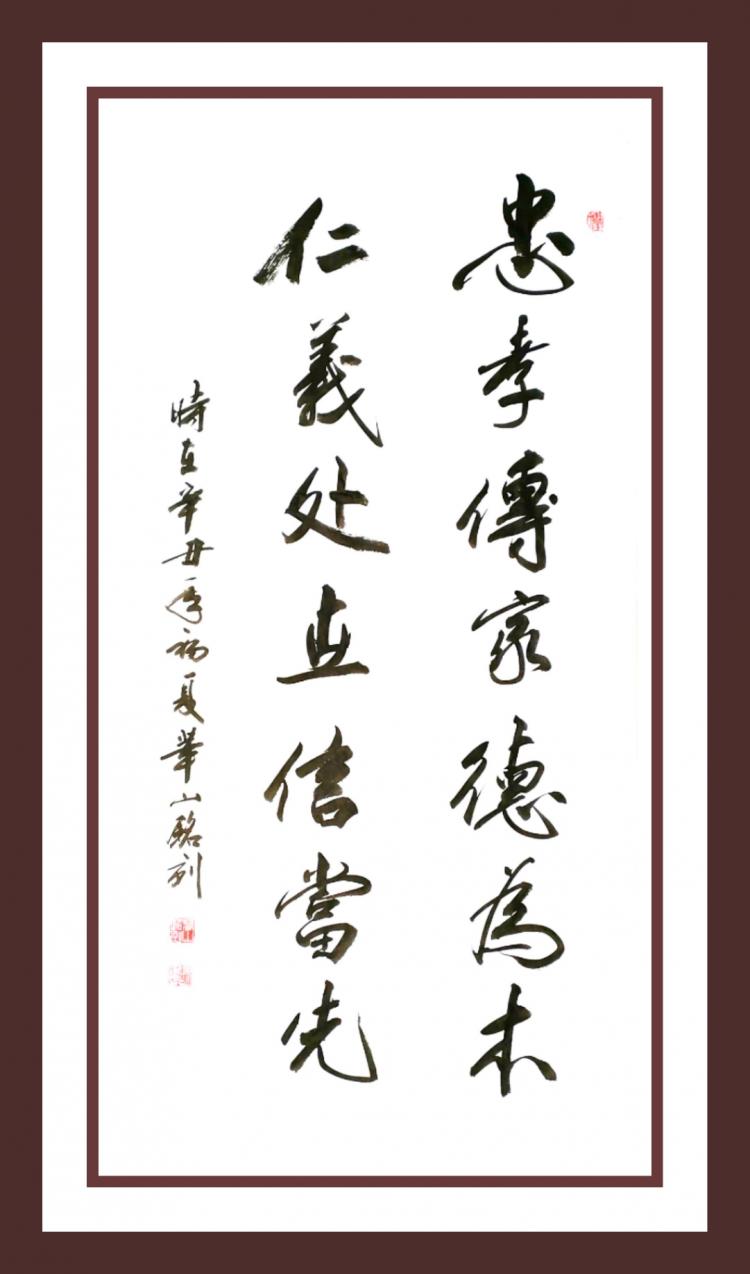 忠孝傳家德為本
仁義处世信當先
時在辛丑年初夏華山銘